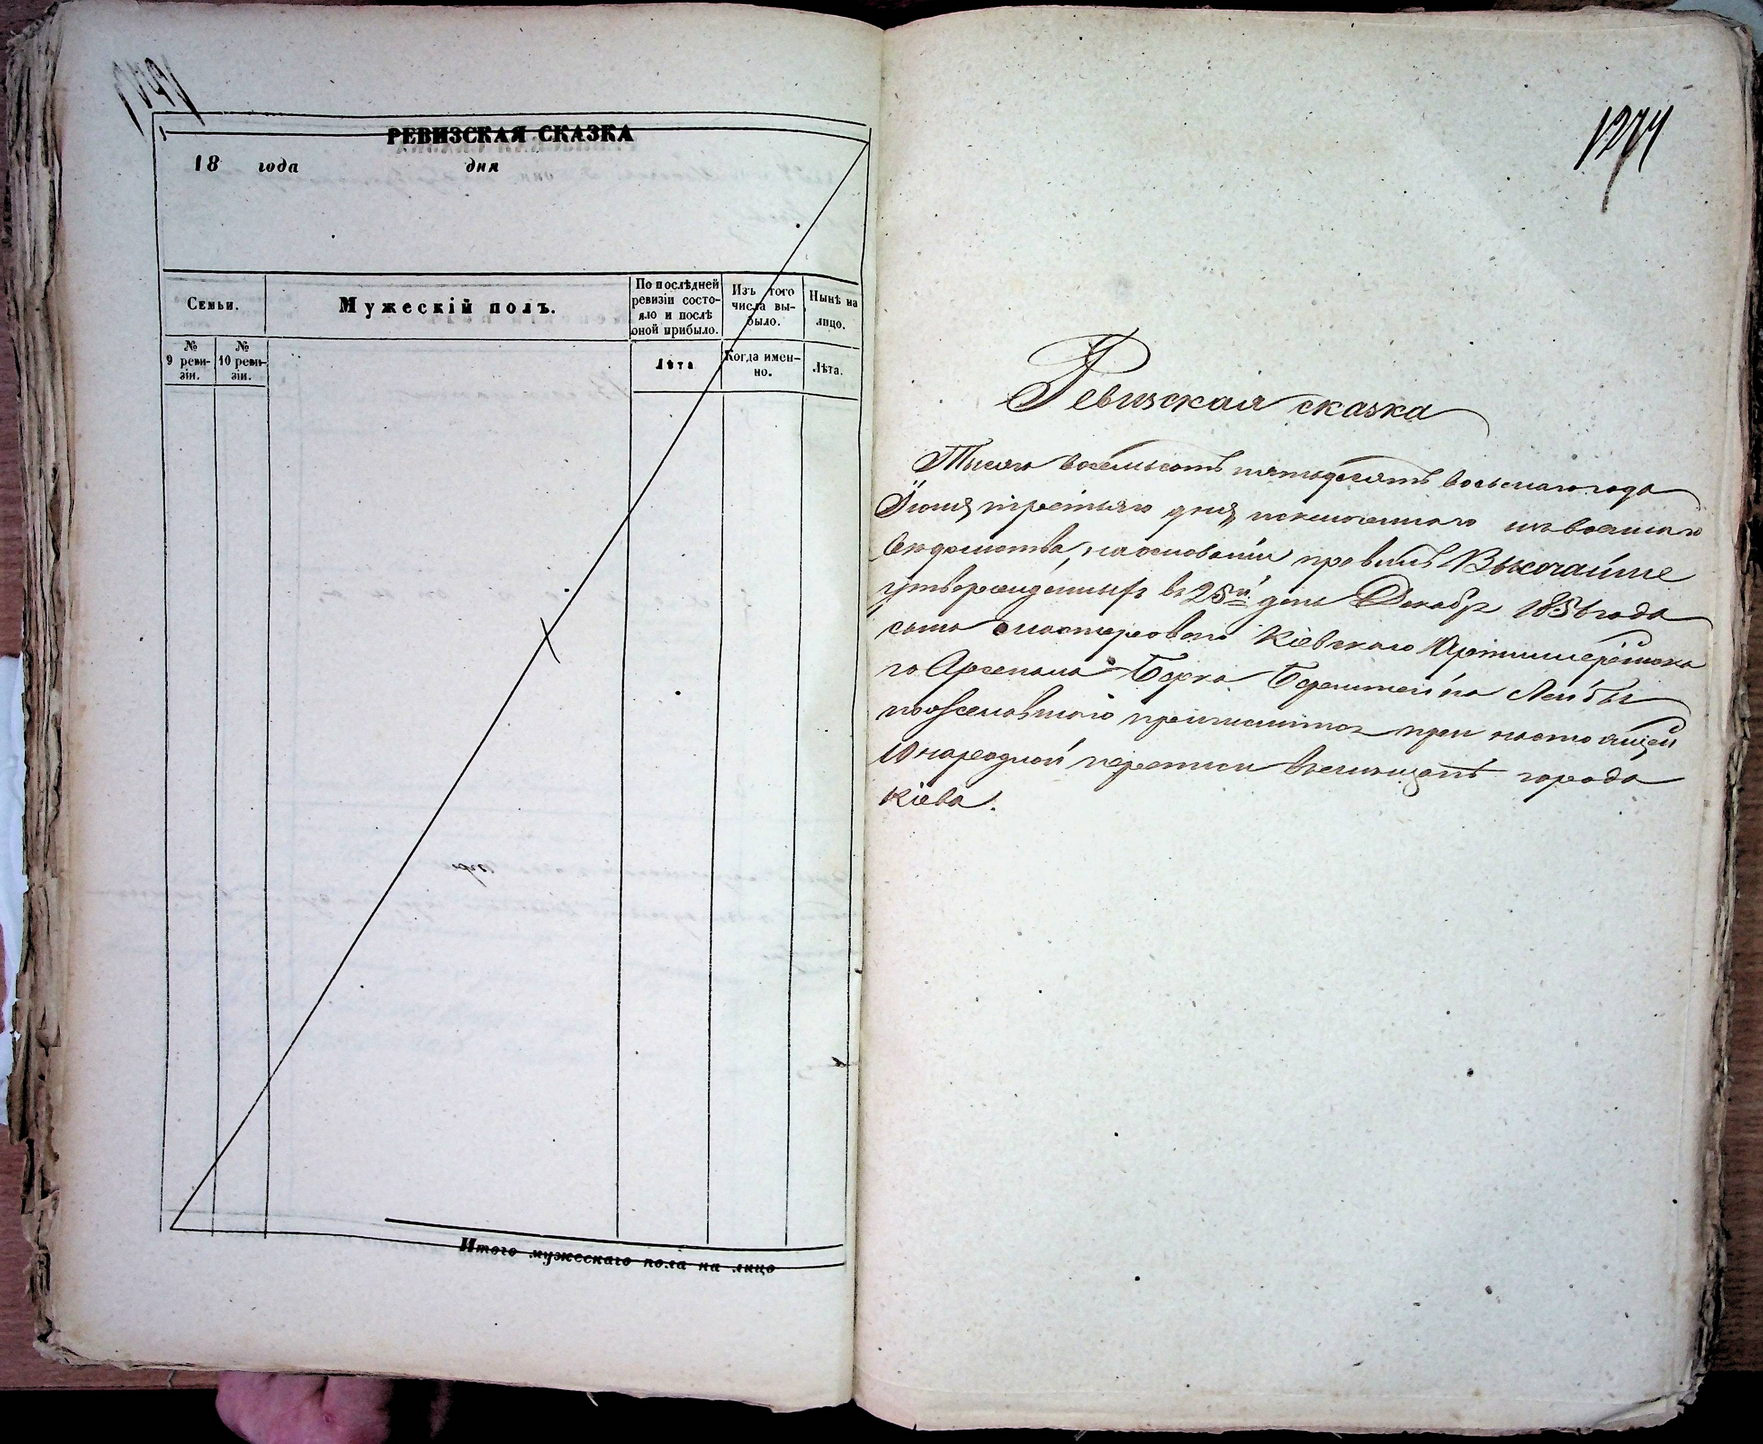 РЕВИЗСКАЯ СКАЗКА
18 года дня
Семьи.
Мужескій полъ.
По послѣдней ревизіи состояло и послѣ оной прибыло.
Изъ того числа выбыло.
Нынѣ на лицо.
№ 9 ревизіи.
№ 10 ревизіи.
Лѣта
Когда именно.
Лѣта.
Итого мужескаго пола на лицо
1274
Ревизская сказка
Тысяча восемьсотъ пятьдесятъ восьмаго года
Іюня третьяго дня исключеннаго изъ военнаго
вѣдомства, на основаніи правилъ Высочайше
утвержденныхъ въ 25й день Декабр 1856 года
сына мастероваго Кіевскаго Артиллерійска
го Арсенала Берка Беренштейна Лейбы
пожелавшаго приписаться при настоящей
10 народной переписи въ мѣщане города
Кіева.